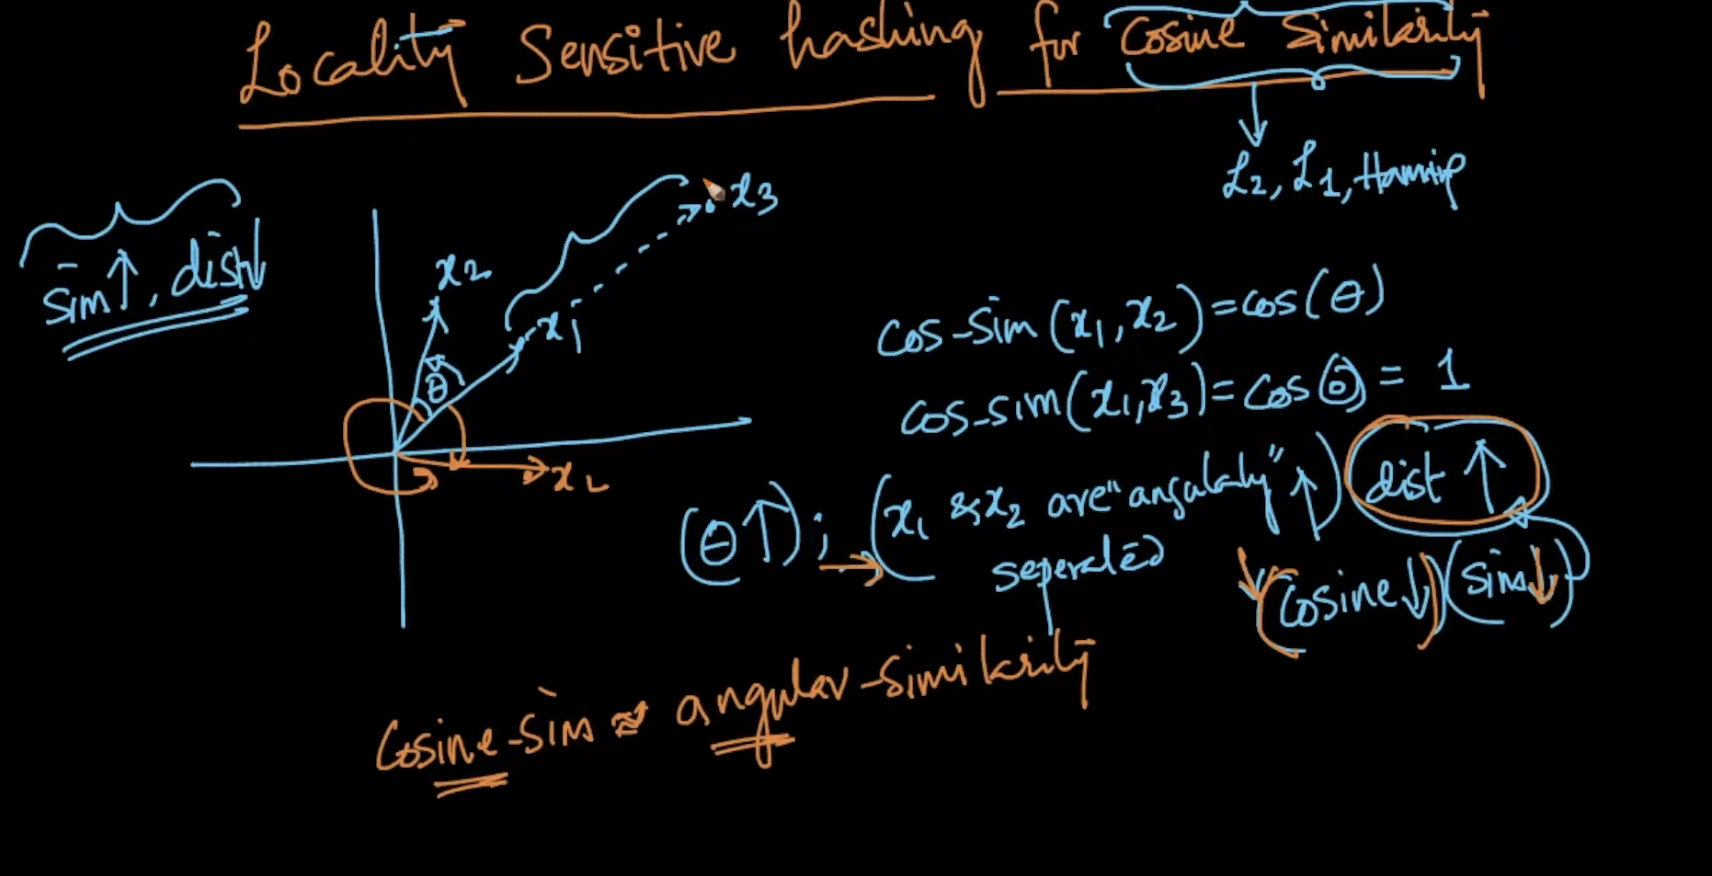 Locality Sensitive hashing for Cosine Similarity
L2, L1, Hamming
sim↑, dist↓
x2
x1
x3
θ
x2
cos-sim(x1, x2) = cos(θ)
cos-sim(x1, x3) = cos(0) = 1
(θ↑); → (x1 & x2 are "angularly"↑) dist↑
seperated
(cosine↓) (sim↓)
Cosine-sim ≈ angular-similarity